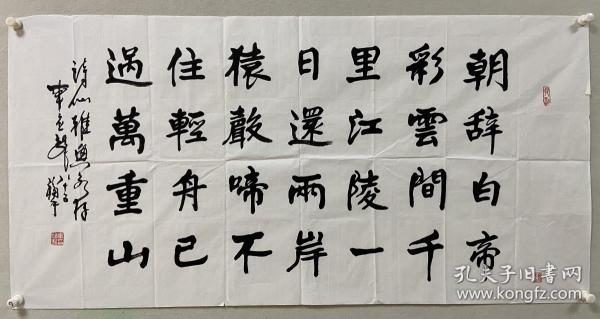 朝辞白帝
彩雲間千
里江陵一
日還兩岸
猿聲啼不
住輕舟已
過萬重山
詩仙雅興
八十五
孔夫子旧书网
www.kongfz.com